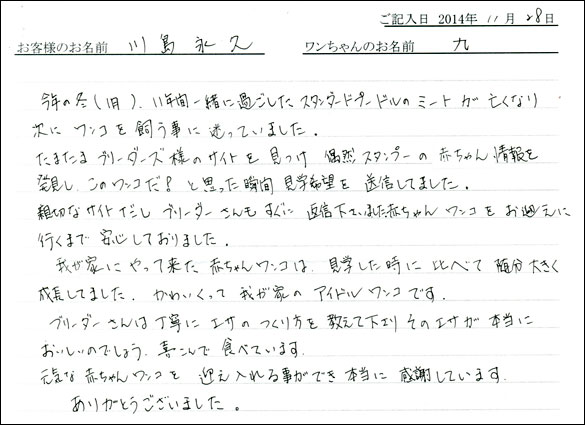 ご記入日 2014年 11月 28日
お客様のお名前 川島 永久 ワンちゃんのお名前 九
今年の冬(1月)、11年間一緒に過ごしたスタンダードプードルのミートが亡くなり
次にワンコを飼う事に迷っていました。
たまたまブリーダーズ様のサイトを見つけ 偶然スタンプーの赤ちゃん情報を
発見し、このワンコだ!と思った瞬間 見学希望を送信してました。
親切なサイトだし ブリーダーさんもすぐに 返信下さいました赤ちゃんワンコをお迎えに
行くまで 安心しておりました。
我が家にやって来た 赤ちゃんワンコは、見学した時に比べて 随分大きく
成長してました。かわいくって 我が家のアイドルワンコです。
ブリーダーさんは丁寧に エサのつくり方を教えて下さり そのエサが本当に
おいしいのでしょう、喜こんで食べています。
元気な赤ちゃんワンコを 迎え入れる事ができ 本当に感謝しています。
ありがとうございました。